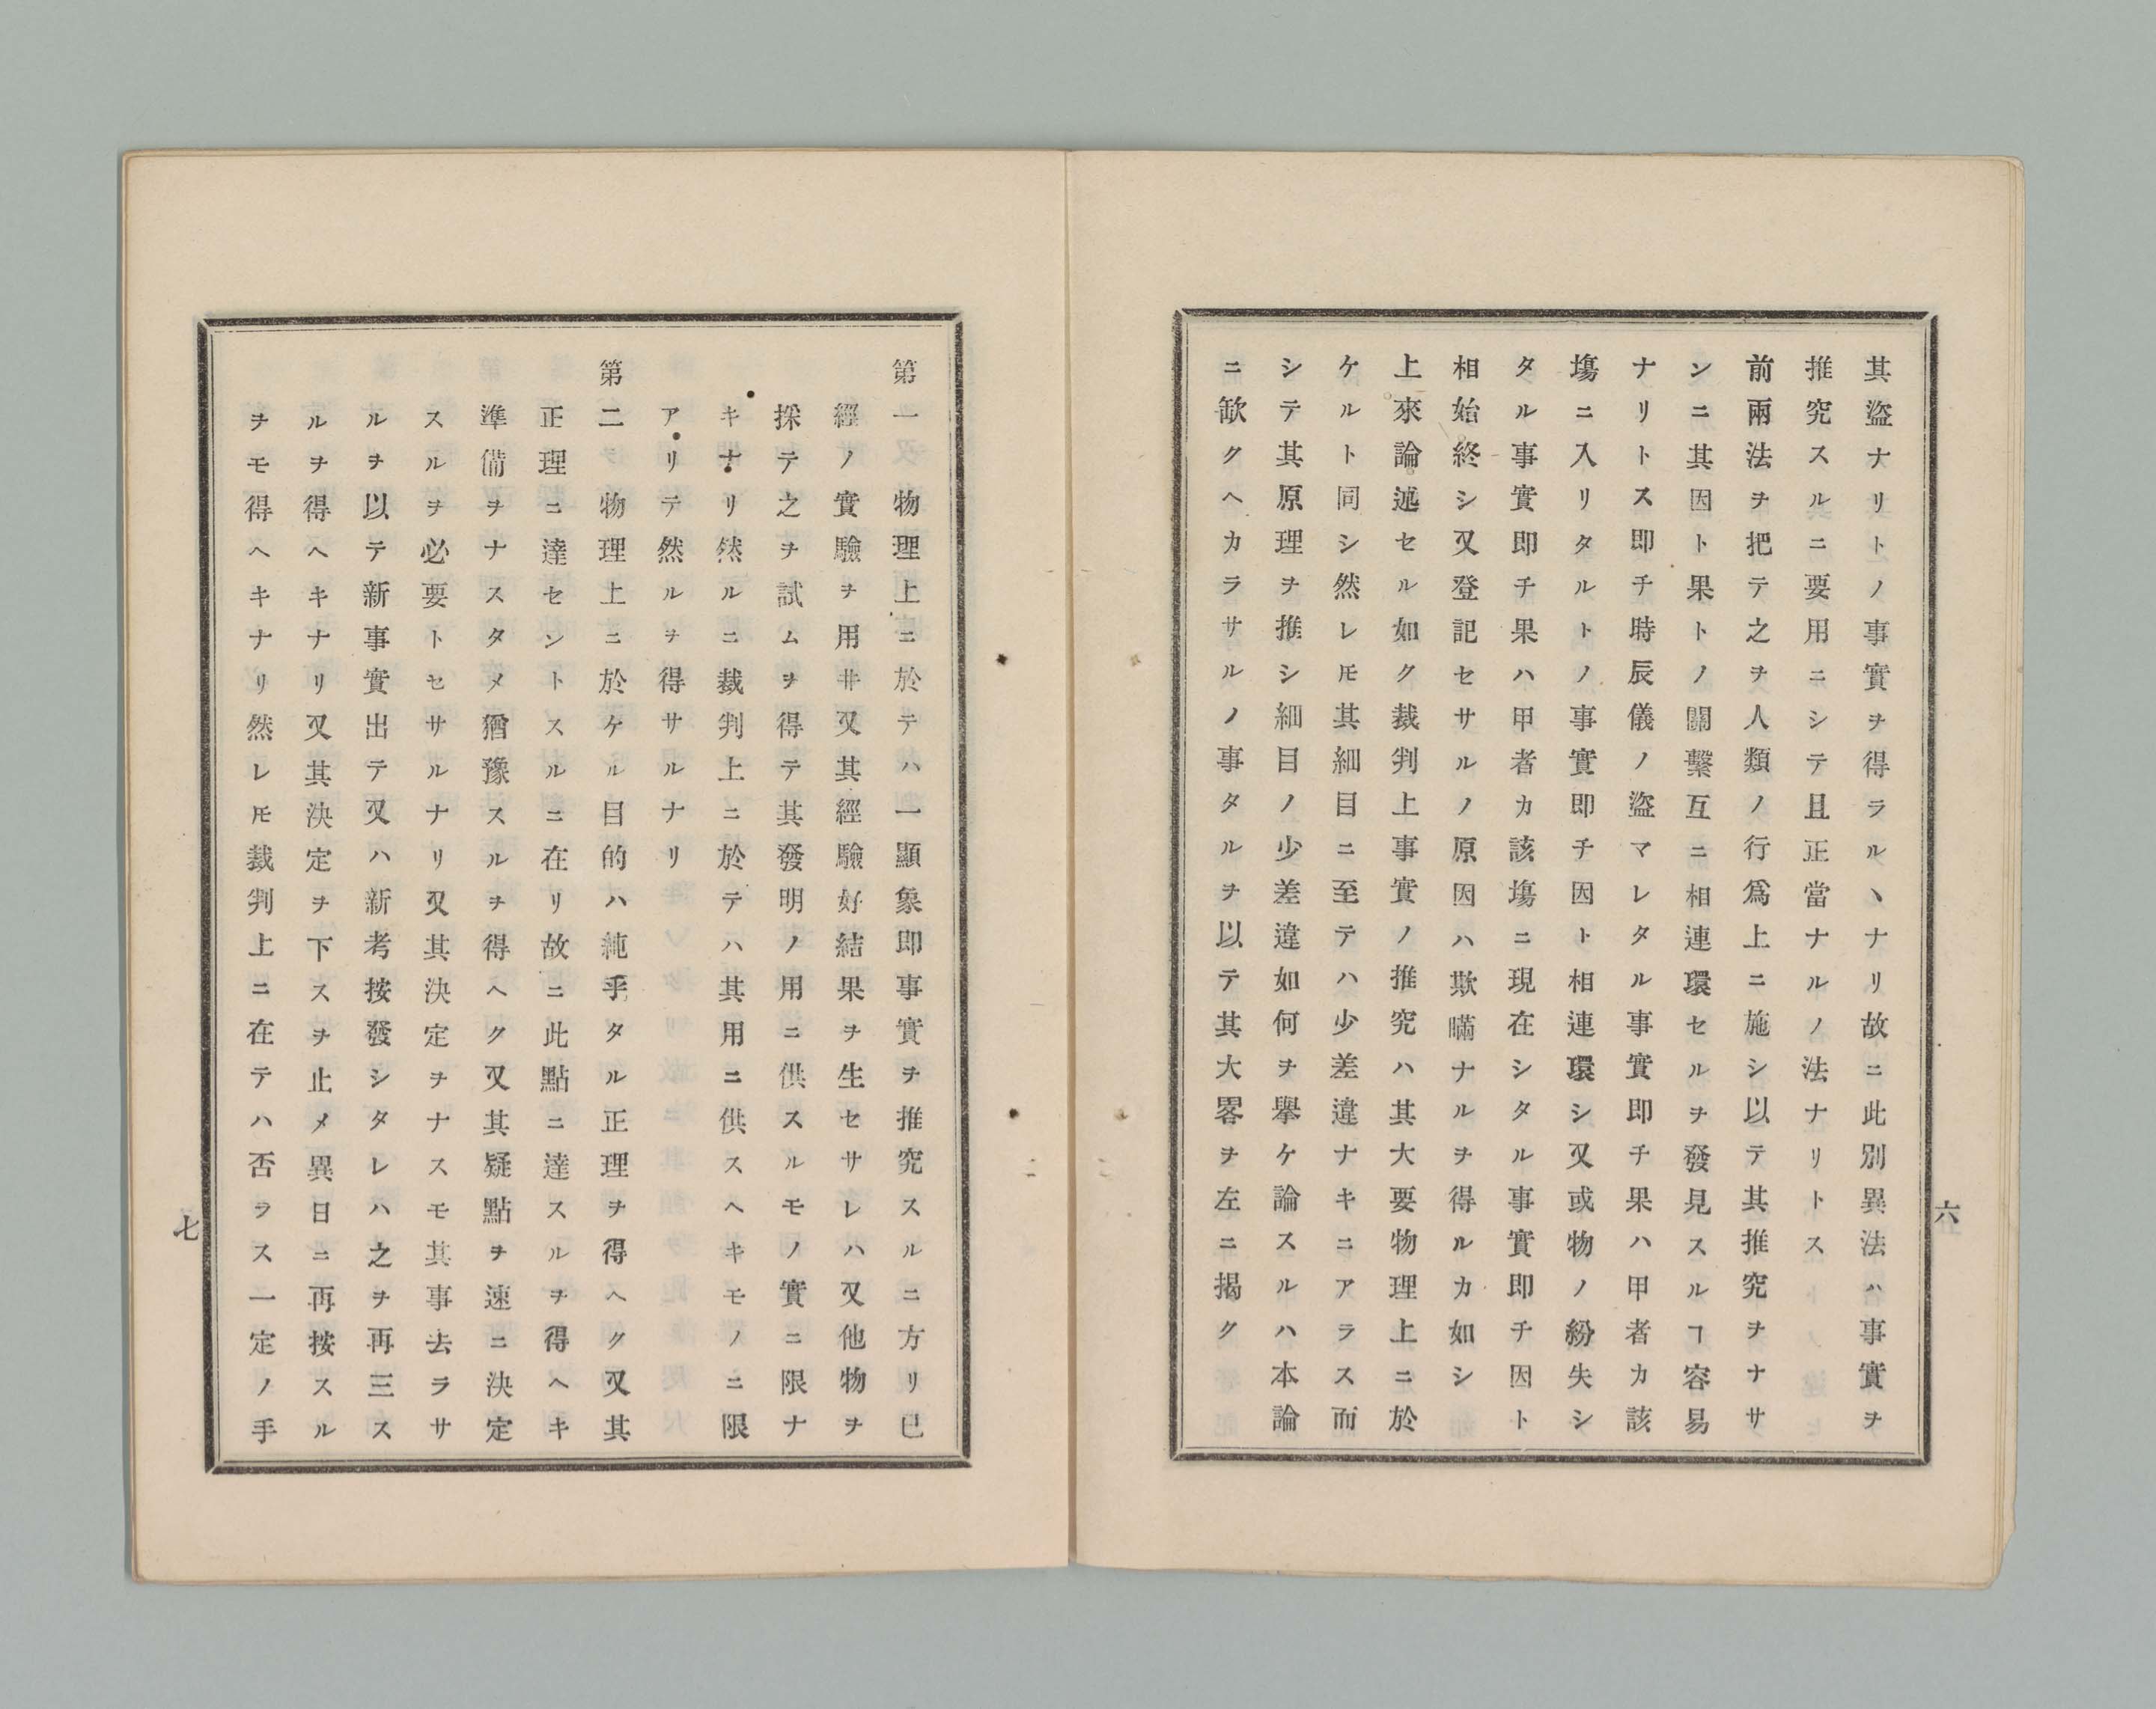 其盜ナリトノ事實ヲ得ラルヽナリ故ニ此別異法ハ事實ヲ
推究スルニ要用ニシテ且正當ナルノ法ナリトス
前兩法ヲ把テ之ヲ人類ノ行爲上ニ施シ以テ其推究ヲナサ
ンニ其因ト果トノ關繫互ニ相連環セルヲ發見スルヿ容易
ナリトス即チ時辰儀ノ盜マレタル事實即チ果ハ甲者カ該
塲ニ入リタルトノ事實即チ因ト相連環シ又或物ノ紛失シ
タル事實即チ果ハ甲者カ該塲ニ現在シタル事實即チ因ト
相始終シ又登記セサルノ原因ハ欺瞞ナルヲ得ルカ如シ
上來論述セル如ク裁判上事實ノ推究ハ其大要物理上ニ於
ケルト同シ然レ𪜈其細目ニ至テハ少差違ナキニアラス而
シテ其原理ヲ推シ細目ノ少差違如何ヲ擧ケ論スルハ本論
ニ歓クヘカラサルノ事タルヲ以テ其大畧ヲ左ニ揭ク
六
第一物理上ニ於テハ一顯象即事實ヲ推究スルニ方リ已
經ノ實驗ヲ用井又其經驗好結果ヲ生セサレハ又他物ヲ
採テ之ヲ試ムヲ得テ其發明ノ用ニ供スルモノ實ニ限ナ
キナリ然ルニ裁判上ニ於テハ其用ニ供スヘキモノニ限
アリテ然ルヲ得サルナリ
第二物理上ニ於ケル目的ハ純乎タル正理ヲ得ヘク又其
正理ニ達センドスルニ在リ故ニ此點ニ達スルヲ得ヘキ
準備ヲナスタメ猶豫スルヲ得ヘク又其疑點ヲ速ニ決定
スルヲ必要トセサルナリ又其決定ヲナスモ其事去ラサ
ルヲ以テ新事實出テ又ハ新考按發シタレハ之ヲ再三ス
ルヲ得ヘキナリ又其決定ヲ下スヲ止メ異日ニ再按スル
ヲモ得ヘキナリ然レ𪜈裁判上ニ在テハ否ラス一定ノ手
七